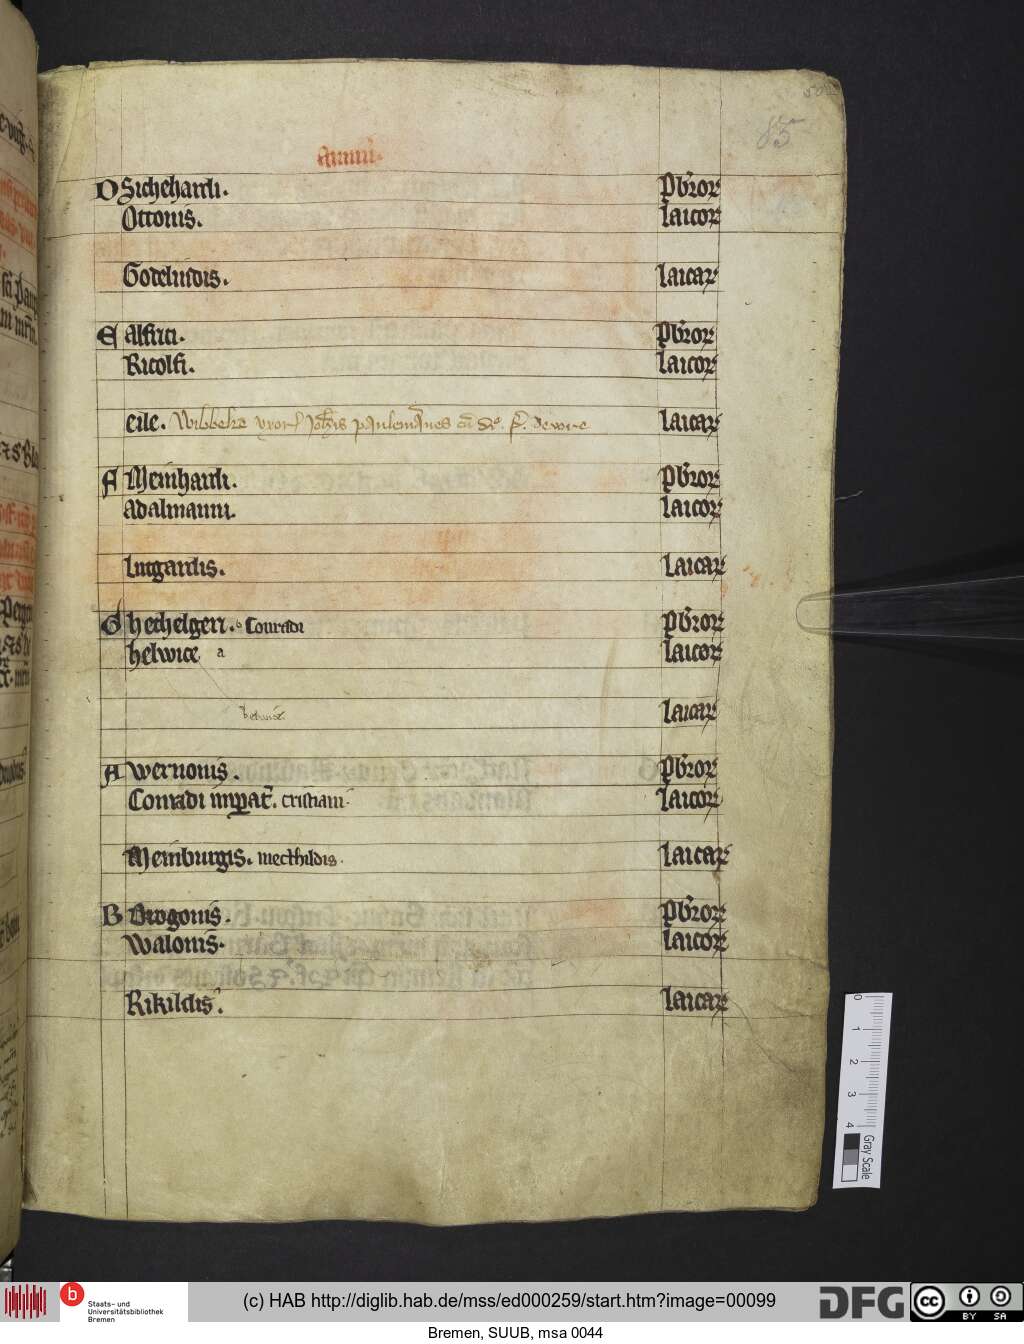 85
D Sichehardi. Pbror
Ottonis. Laicor
Godelindis. Laicar
E Alfrici. Pbror
Ricolfi. Laicor
eile. Wibbeke vxor Johis Laicar
F Meinhardi. Pbror
Adalmanni. Laicor
Lutgardis. Laicar
G hechelgeri. b Conradi Pbror
helwice a Laicor
Laicar
A Wernonis. Pbror
Conradi imperat. cristiani. Laicor
Meinburgis. mecthildis. Laicar
B Drogonis. Pbror
Walonis. Laicor
Rikildis. Laicar
0 1 2 3 4
Gray Scale
b Staats- und
Universitätsbibliothek
Bremen
(c) HAB http://diglib.hab.de/mss/ed000259/start.htm?image=00099
DFG cc BY SA
Bremen, SUUB, msa 0044